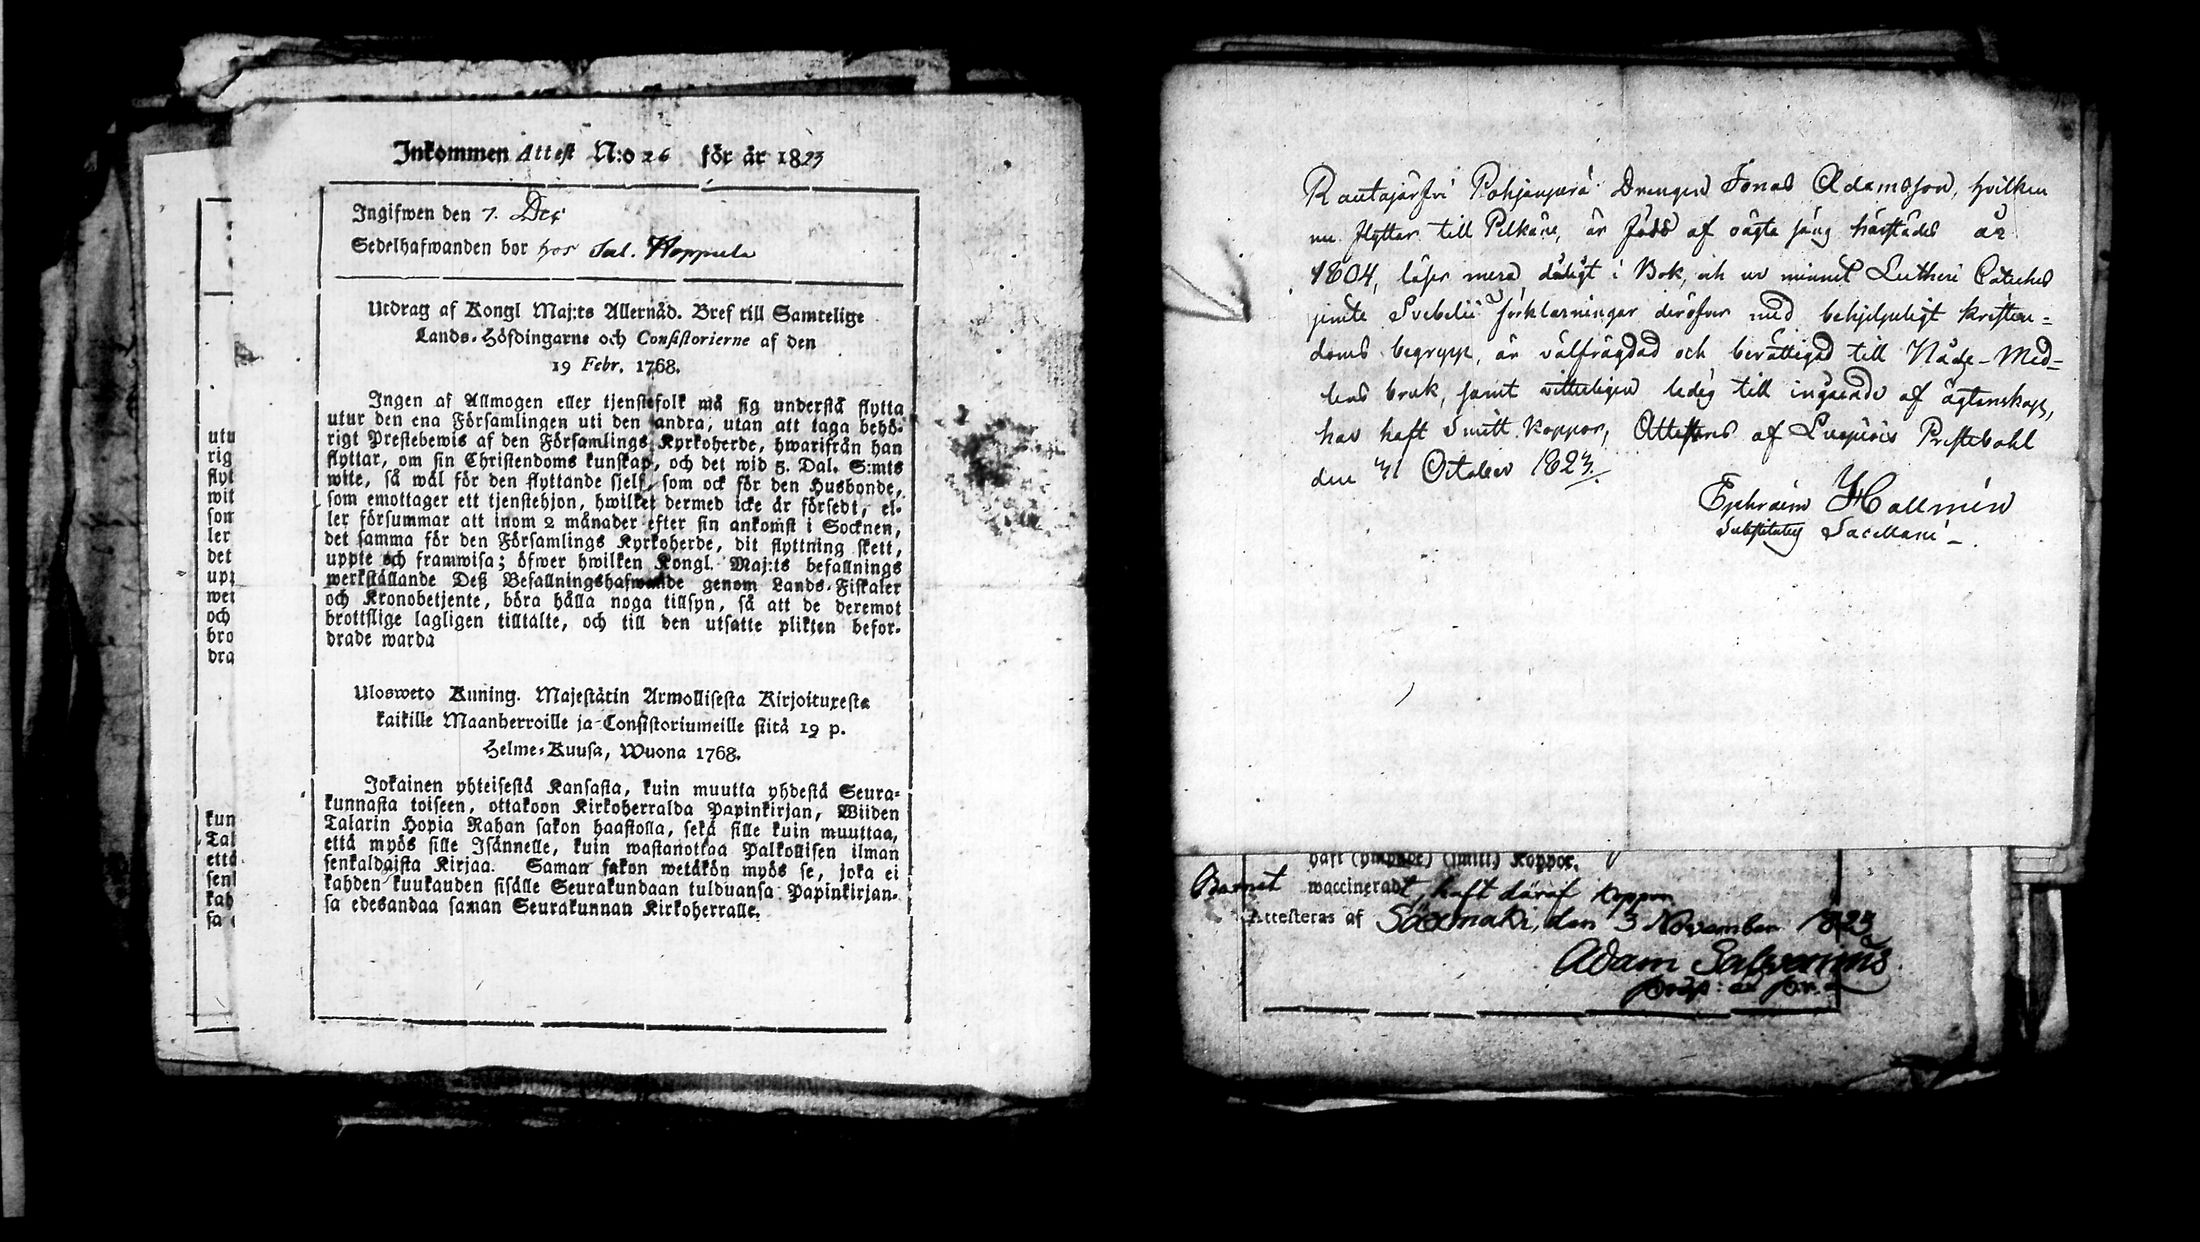 Inkommen Attest N:o 26 för år 1823
Ingifwen den 7. Dec
Sedelhafwanden bor hos Sal. Hoppula
Utdrag af Kongl Maj:ts Allernåd. Bref till Samtelige
Lands-Höfdingarne och Consistorierne af den
19 Febr. 1768.
Ingen af Allmogen eller tjenstefolk må sig understå flytta
utur den ena Församlingen uti den andra, utan att taga behö-
rigt Prestebewis af den Församlings Kyrkoherde, hwarifrån han
flyttar, om sin Christendoms kunskap, och det wid 5. Dal. S:mts
wite, så wäl för den flyttande sielf, som ock för den Husbonde,
som emottager ett tjenstehjon, hwilket dermed icke är försedt, el-
ler försummar att inom 2 månader efter sin ankomst i Socknen,
det samma för den Församlings Kyrkoherde, dit flyttning skett,
uppte och framwisa; öfwer hwilken Kongl. Maj:ts befallnings
werkställande Deß Befallningshafwande genom Lands-Fiskaler
och Kronobetjente, böra hålla noga tillsyn, så att de deremot
brottslige lagligen tilltalte, och till den utsatte plikten befor-
drade warda
Ulosweto Kuning. Majestätin Armollisesta Kirjoituxesta
kaikille Maanherroille ja Consistoriumeille siitä 19 p.
Helme-Kuusa, Wuona 1768.
Jokainen yhteisestä Kansasta, kuin muutta yhdestä Seura-
kunnasta toiseen, ottakoon Kirkoherralda Papinkirjan, Wiiden
Talarin Hopia Rahan sakon haastolla, sekä sille kuin muuttaa,
että myös sille Isännelle, kuin wastanottaa Palkollisen ilman
senkaldaista Kirjaa. Saman sakon wetäkön myös se, joka ei
kahden kuukauden sisälle Seurakundaan tulduansa Papinkirjan-
sa edesandaa saman Seurakunnan Kirkoherralle.
utu
rig
flyt
wit
som
ler
det
upp
wer
och
bro
dra
kun
Tal
että
senk
kah
sa e
Rautajärfvi Pohjanperä Drengen Jonas Adamsson, hvilken
nu flyttar till Pelkäne, är född af oägta säng härstädes år
1804, läser mera dåligt i Bok, och ur minnet Lutheri Cateches
jemte Svebelii förklarningar deröfver med behjelpeligt kristen-
doms begrepp, är välfrägdad och berättigad till Nåde-Med-
lens bruk, samt vitterligen ledig till ingående af ägtenskap,
har haft Smitt koppor, Attesteras af Luopiois Prestebohl
den 31 October 1823.
Ephraim Hallmén
Substitutus Sacellani
haft (ympade) (smitt) Koppor.
Barnet waccineradt, haft däraf koppor
Attesteras af Sääxmäki, den 3 November 1823
Adam Salvenius